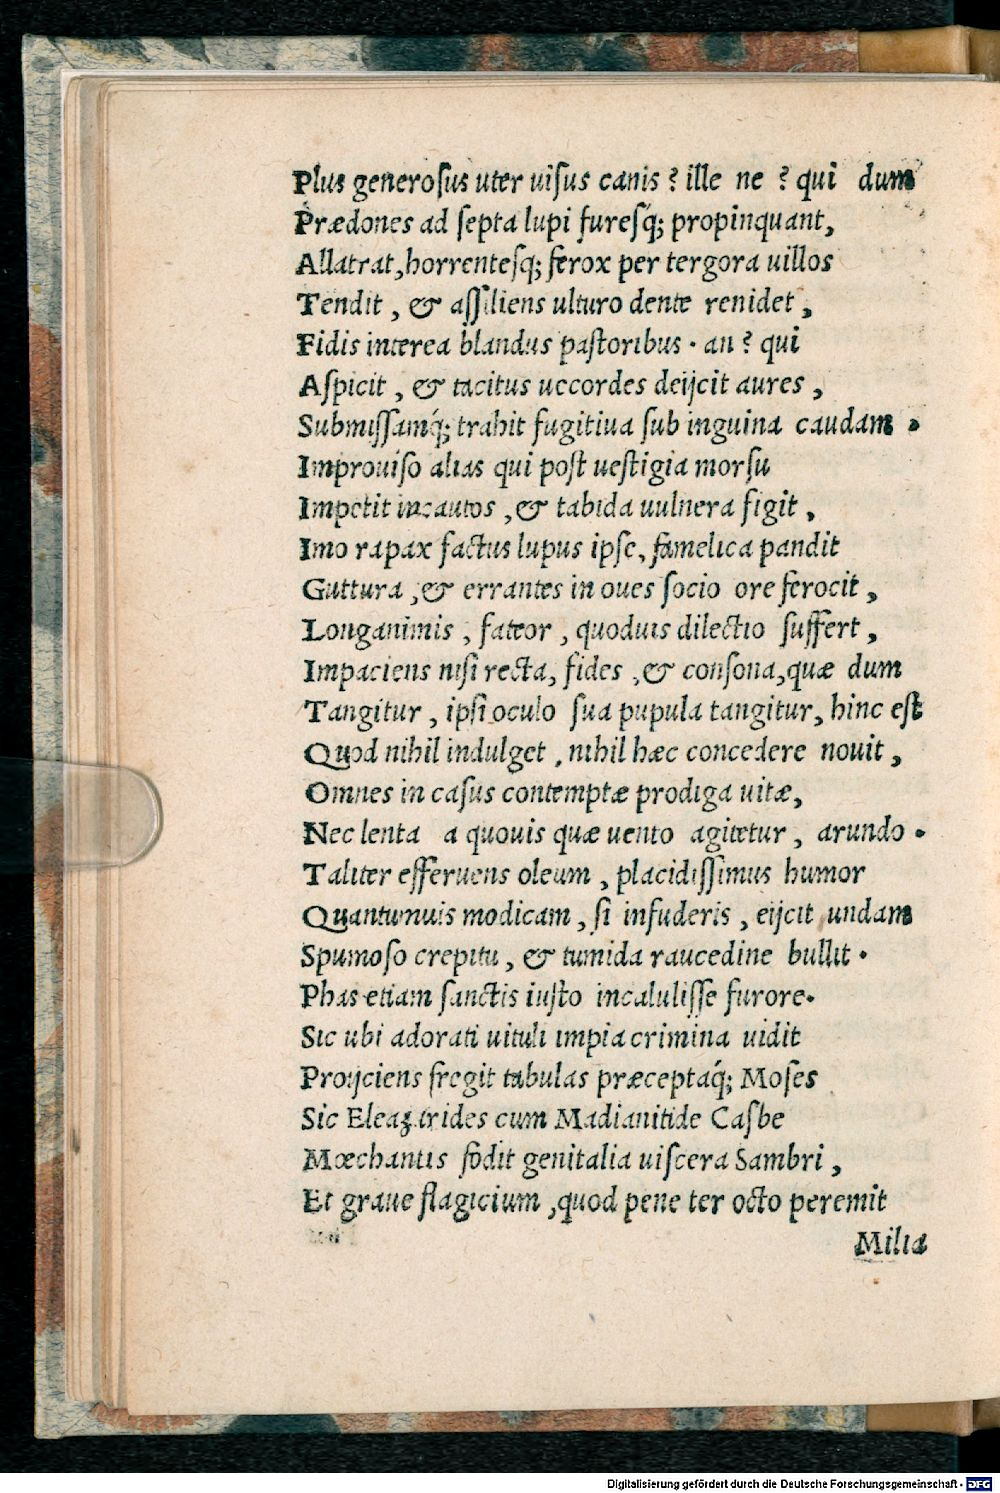 Plus generoſus uter uiſus canis ? ille ne ? qui dum
Prædones ad ſepta lupi fureſq́; propinquant,
Allatrat, horrenteſq; ferox per tergora uillos
Tendit , & aſſiliens ulturo dente renidet ,
Fidis interea blandus paſtoribus · an ? qui
Aſpicit , & tacitus uecordes deijcit aures ,
Submiſſamq́; trahit fugitiua ſub inguina caudam •
Improuiſo alias qui poſt ueſtigia morſu
Impetit incautos , & tabida uulnera figit ,
Imo rapax factus lupus ipſe, famelica pandit
Guttura , & errantes in oues ſocio ore ferocit ,
Longanimis , fateor , quoduis dilectio ſuffert ,
Impaciens niſi recta, fides , & conſona, quæ dum
Tangitur , ipſi oculo ſua pupula tangitur, hinc eſt
Quod nihil indulget , nihil hæc concedere nouit ,
Omnes in caſus contemptæ prodiga uitæ,
Nec lenta a quouis quæ uento agitetur , arundo •
Taliter efferuens oleum , placidiſſimus humor
Quantumuis modicam , ſi infuderis , eijcit undam
Spumoſo crepitu , & tumida raucedine bullit ·
Phas etiam ſanctis iuſto incaluliſſe furore·
Sic ubi adorati uituli impia crimina uidit
Proijciens fregit tabulas præceptaq́; Moſes
Sic Eleazarides cum Madianitide Caſbe
Mœchantis fōdit genitalia uiſcera Sambri ,
Et graue flagicium , quod pene ter octo peremit
Milia
Digitalisierung gefördert durch die Deutsche Forschungsgemeinschaft - DFG